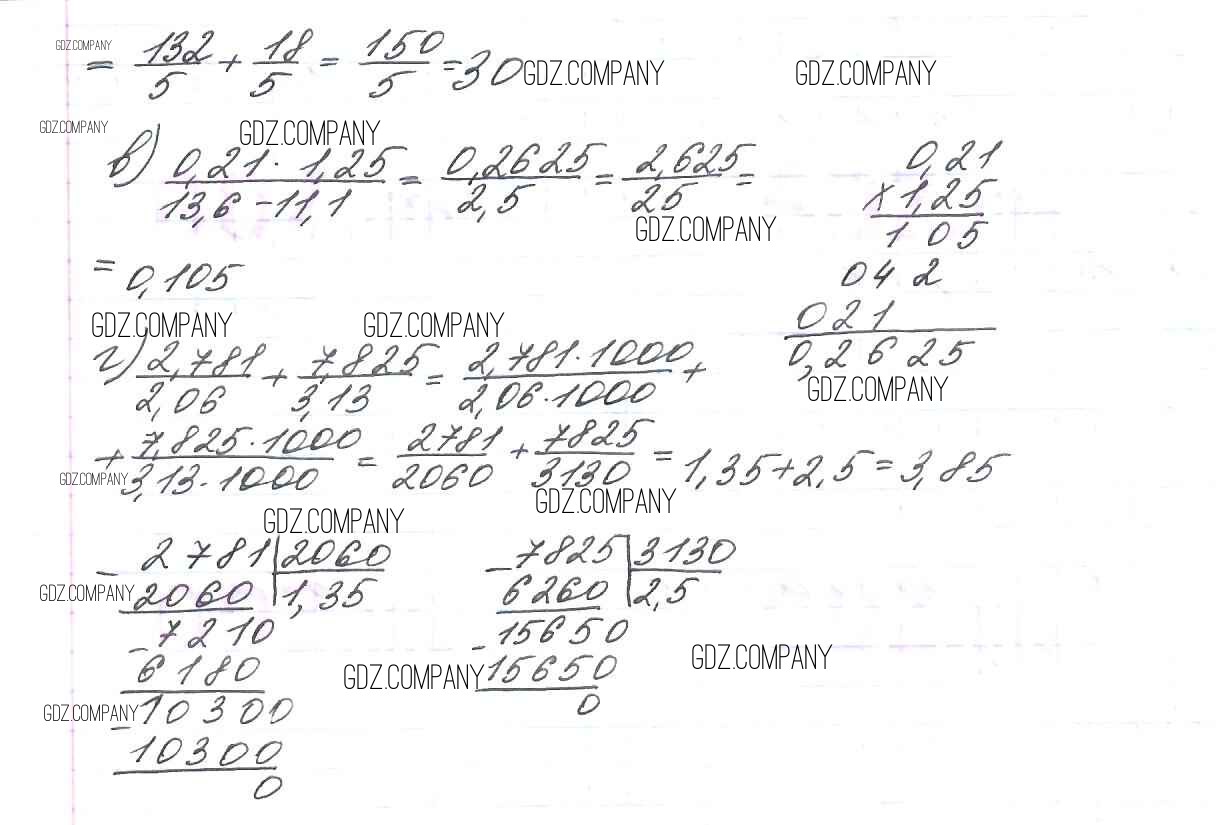 GDZ.COMPANY
= 132/5 + 18/5 = 150/5 = 30 GDZ.COMPANY GDZ.COMPANY
GDZ.COMPANY GDZ.COMPANY
в) 0,21 · 1,25 / 13,6 - 11,1 = 0,2625 / 2,5 = 2,625 / 25 =
GDZ.COMPANY
= 0,105
0,21
× 1,25
1 05
04 2
021
0,2625
GDZ.COMPANY
GDZ.COMPANY GDZ.COMPANY
г) 2,781 / 2,06 + 7,825 / 3,13 = 2,781 · 1000 / 2,06 · 1000 +
+ 7,825 · 1000 / 3,13 · 1000 = 2781 / 2060 + 7825 / 3130 = 1,35 + 2,5 = 3,85
GDZ.COMPANY GDZ.COMPANY
GDZ.COMPANY
- 2781 | 2060
2060 | 1,35
GDZ.COMPANY
- 7210
6180
- 10300
GDZ.COMPANY
10300
0
- 7825 | 3130
6260 | 2,5
- 15650
15650
0
GDZ.COMPANY GDZ.COMPANY